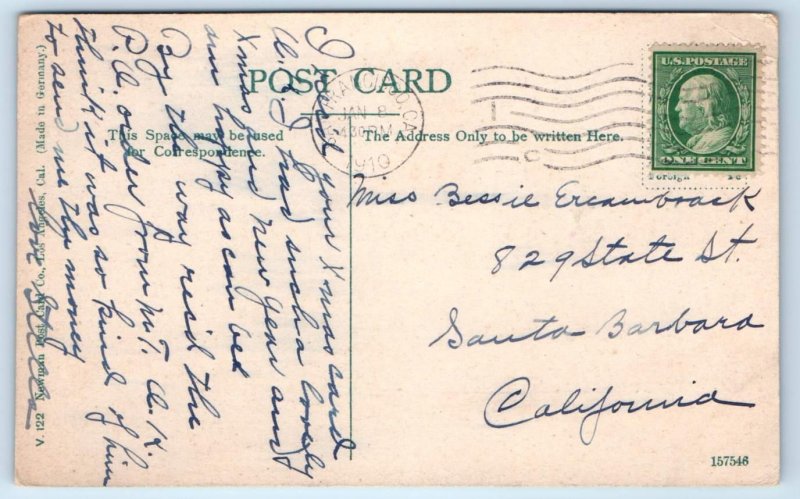 POST CARD
This Space may be used
for Correspondence.
The Address Only to be written Here.
U.S. POSTAGE
ONE CENT
Foreign
JAN 8
4 30 PM
1910
Miss Bessie Ercanbrack
829 State St.
Santa Barbara
California
your X-mas card
O.K. I had such a lovely
Xmas and new year and
am happy as can be
By the way recd the
P.O. order from Mr. A. K.
think it was so kind of him
to send me the money
V. 122 Newman Post Card Co., Los Angeles, Cal. (Made in Germany.)
157546